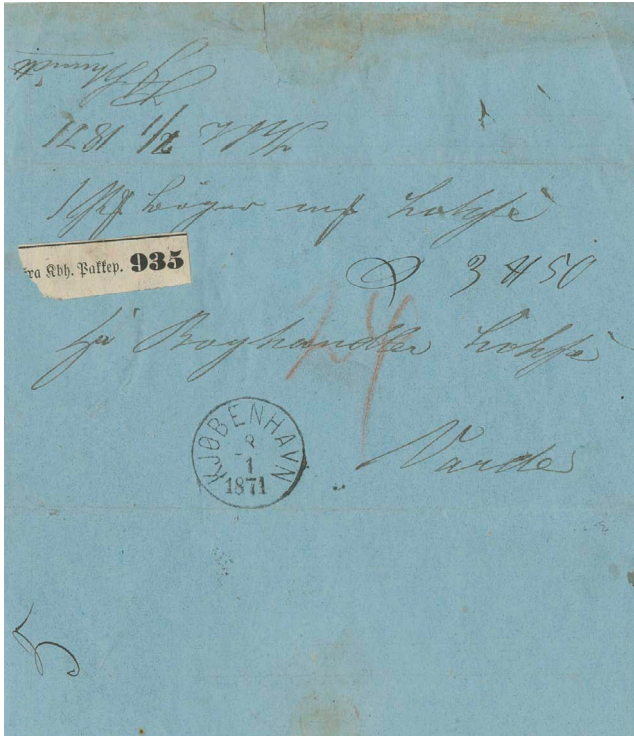 Kbh 7/1 1871
1 Pk bøger mrk Lohse
ra Kbh. Pakkep. 935
3 ℔ 50
24
Hr Boghandler Lohse
Varde
KJØBENHAVN
8
1
1871